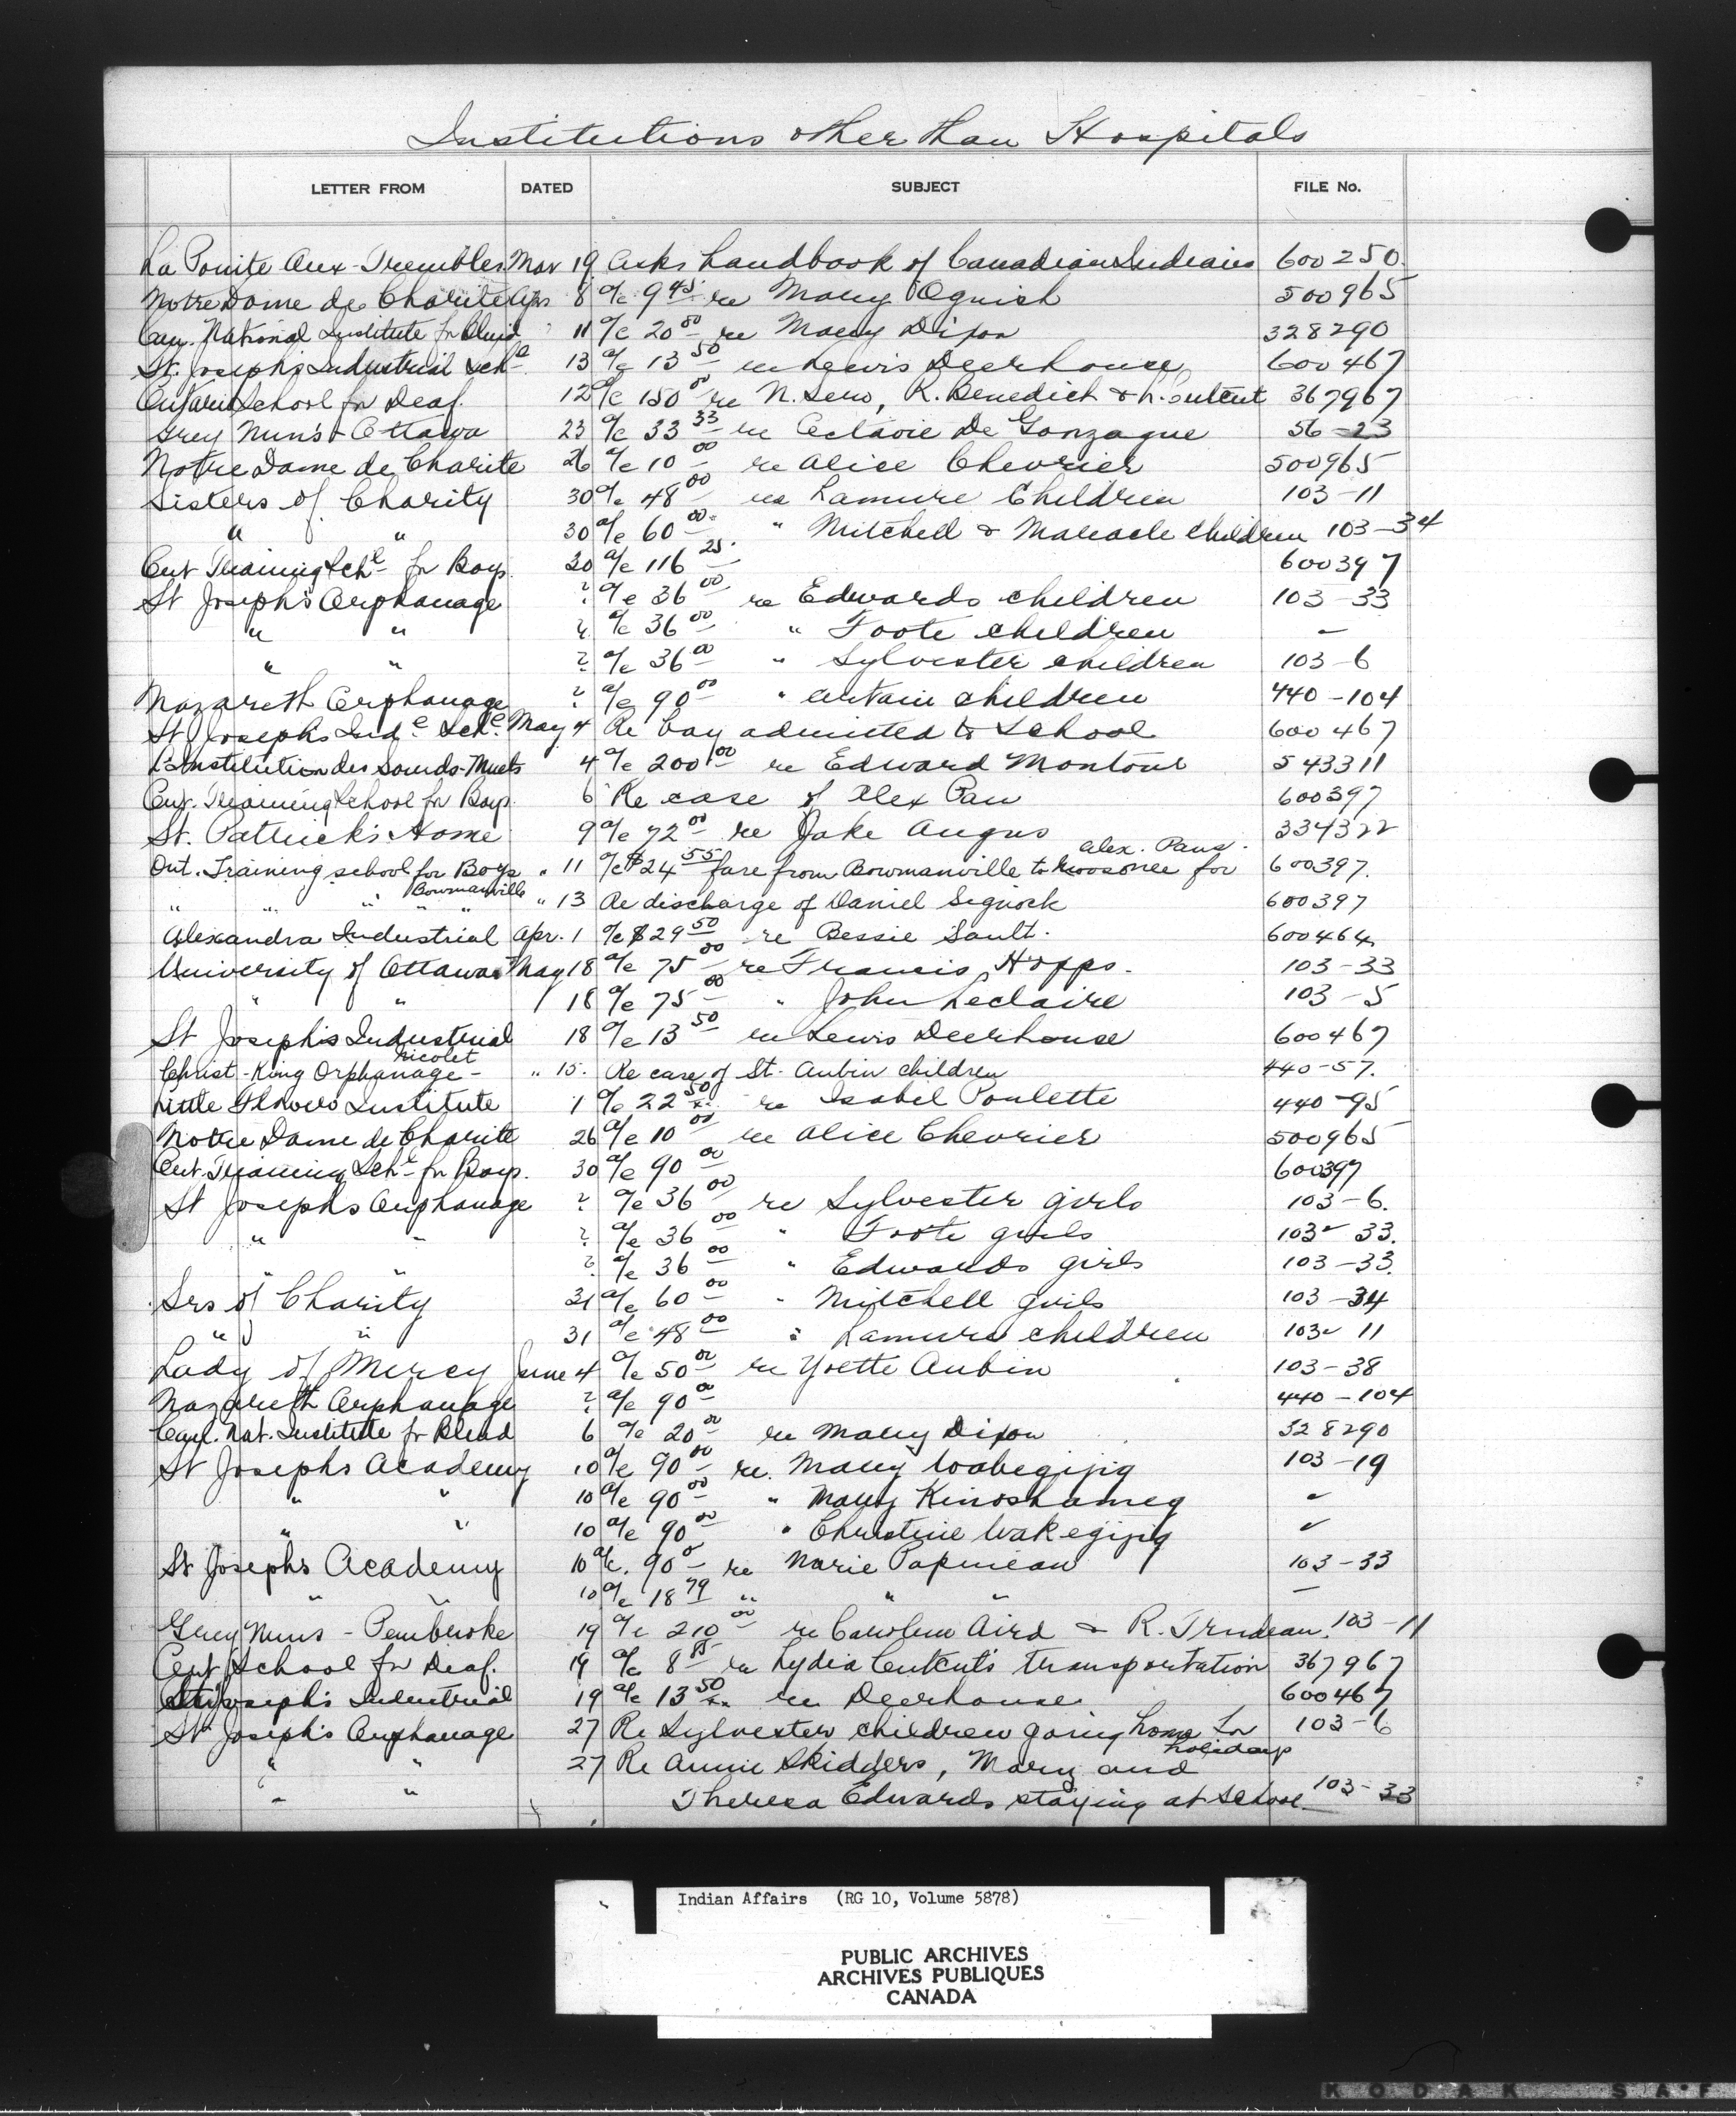 Institutions other than Hospitals
LETTER FROM DATED SUBJECT FILE No.
La Pointe Aux-Trembles Mar 19 Asks handbook of Canadian Indians 600250.
Notre Dame de Charite Apr 8 a/c 9 45 re Mary Oguish 500965
Can. National Institute for Blind " 11 a/c 20 00 re Mary Dixon 328290
St. Joseph's Industrial Schl 13 a/c 13 50 re Lewis Deerhouse 600467
Ontario School for Deaf. 12 a/c 150 00 re N. , R. Benedict & L. Cutcut 367967
Grey Nun's Ottawa 23 a/c 33 33 re Octavie De Gonzague 56-23
Notre Dame de Charite 26 a/c 10 00 re Alice Chevrier 500965
Sisters of Charity 30 a/c 48 00 re Lamure Children 103-11
" " 30 a/c 60 00 " Mitchell & Maracle children 103-34
Ont Training Schl for Boys. 20 a/c 116 25 600397
St Joseph's Orphanage ? a/c 36 00 re Edwards children 103-33
" " ? a/c 36 00 " Foote children -
" " ? a/c 36 00 " Sylvester children 103-6
Nazareth Orphanage ? a/c 90 00 " certain children 440-104
St Josephs Indl Schl. May 4 Re boy admitted to School 600467
L'Institution des Sourds-Muets 4 a/c 200 00 re Edward Montour 543311
Ont. Training School for Boys. 6 Re case of Alex Pau 600397
St. Patrick's Home 9 a/c 72 00 re Jake Angus 334322
Alex. Paus.
Ont. Training school for Boys " 11 a/c $24 55 fare from Bowmanville to Moosonee for 600397.
Bowmanville
" " " " " " 13 Re discharge of Daniel Signock 600397
Alexandra Industrial Apr. 1 a/c $29 50 re Bessie Sault. 600464
University of Ottawa May 18 a/c 75 00 re Francis Hopps. 103-33
" " 18 a/c 75 00 " John Leclaire 103-5
St Joseph's Industrial 18 a/c 13 50 re Lewis Deerhouse 600467
Nicolet
Christ-King Orphanage - " 15. Re care of St. Aubin children 440-57.
Little Flower Institute 1 a/c 22 50 re Isabel Poulette 440-95
Notre Dame de Charite 26 a/c 10 00 re Alice Chevrier 500965
Ont. Training Schl for Boys. 30 a/c 90 00 600397
St Josephs Orphanage ? a/c 36 00 re Sylvester girls 103-6.
" " ? a/c 36 00 " Foote girls 103-33.
" " ? a/c 36 00 " Edwards girls 103-33.
Srs of Charity 31 a/c 60 00 " Mitchell girls 103-34
" " 31 a/c 48 00 " Lamure children 103-11
Lady of Mercy June 4 a/c 50 00 re Yvette Aubin 103-38
Nazareth Orphanage ? a/c 90 00 440-104
Can. Nat. Institute for Blind 6 a/c 20 00 re Mary Dixon 328290
St Josephs Academy 10 a/c 90 00 re. Mary Wabegijig 103-19
" " 10 a/c 90 00 " Mary Kinoshameg "
" " 10 a/c 90 00 " Christine Wakegijig "
St Josephs Academy 10 a/c. 90 00 re Marie Papineau 103-33
" " 10 a/c 18 79 " " " -
Grey Nuns - Pembroke 19 a/c 210 00 re Carolem Aird & R. Trudeau. 103-11
Ont School for Deaf. 19 a/c 8 85 re Lydia Cutcut's transportation 367967
St Joseph's Industrial 19 a/c 13 50 re Deerhouse 600467
St Joseph's Orphanage 27 Re Sylvester children going home for 103-6
holidays
" " 27 Re Annie Skidders, Mary and
" " Theresa Edwards staying at School 103-33
Indian Affairs (RG 10, Volume 5878)
PUBLIC ARCHIVES
ARCHIVES PUBLIQUES
CANADA
KODAK SAF